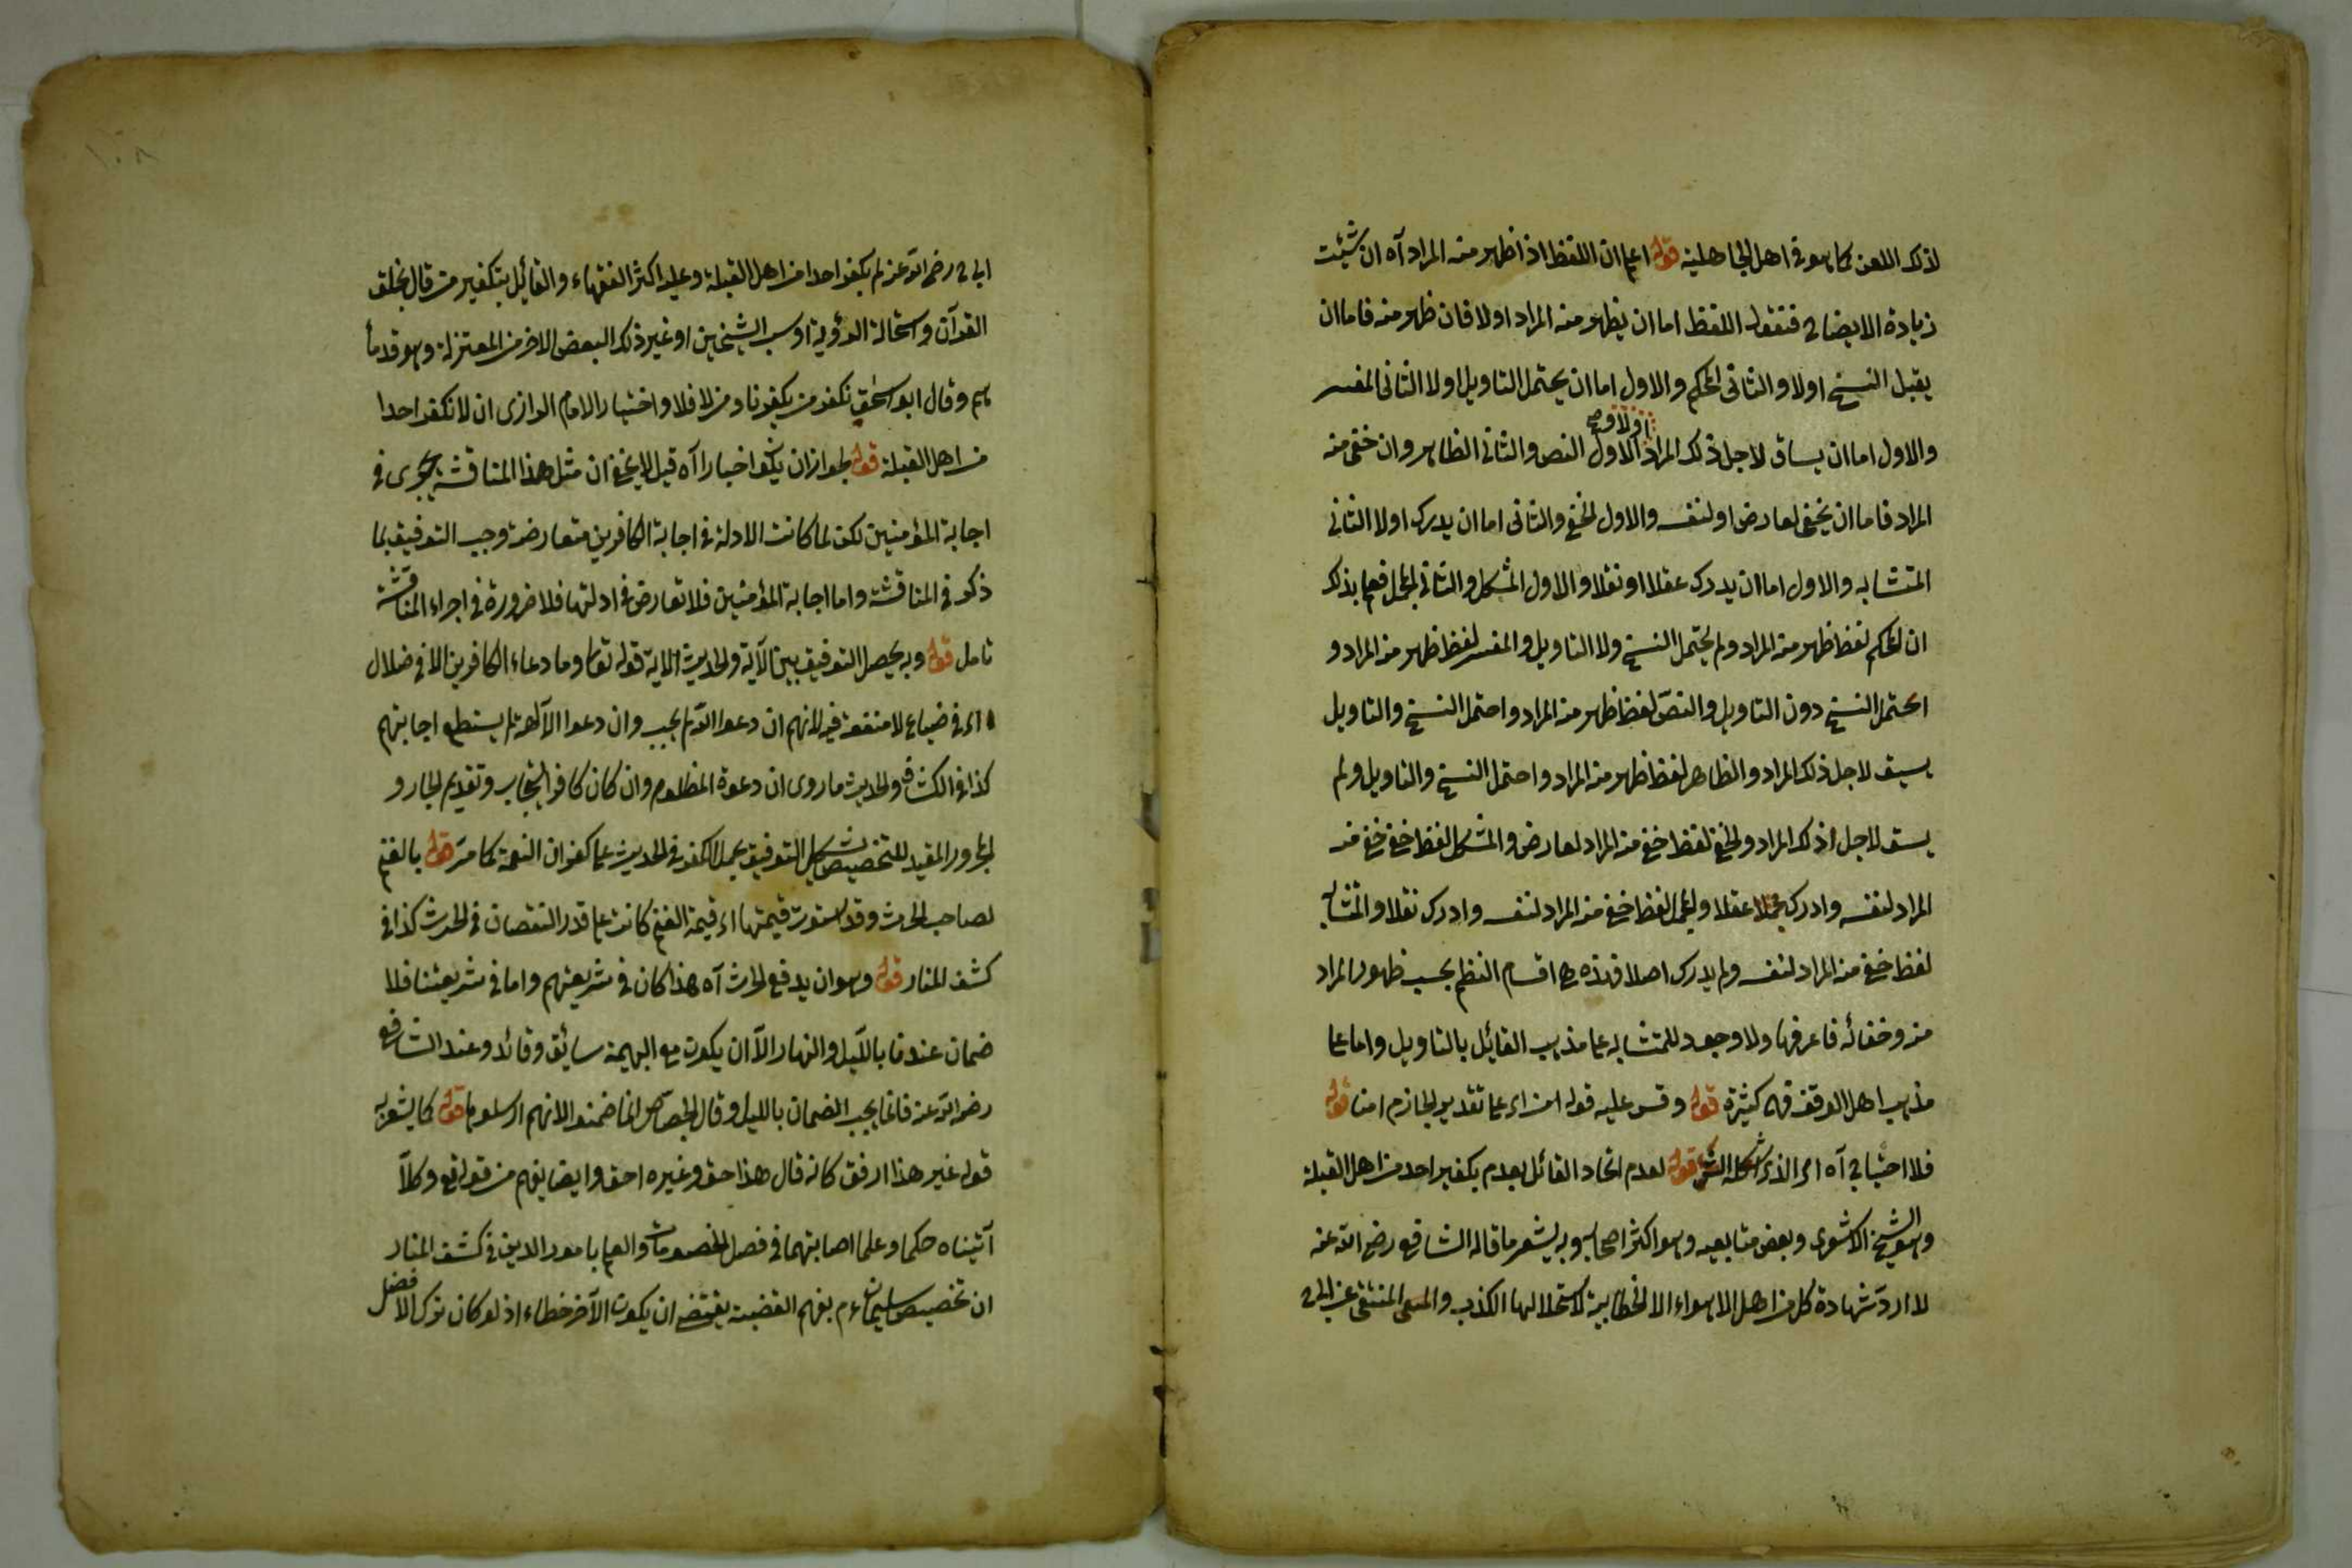 لذلك اللعن كما هو في اهل الجاهلية قوله اعلم ان اللفظ اذا ظهر منه المراد آه ان شئت
زيادة الايضاح فنقول اللفظ اما ان يظهر منه المراد اولا فان ظهر منه فاما ان
يقبل النسخ اولا والثاني المحكم والاول اما ان يحتمل التاويل اولا الثاني المفسر
والاول اما ان يساق لاجل ذلك المراد اولا الاول النص والثاني الظاهر وان خفي منه
المراد فاما ان يخفى لعارض او لنفسه والاول الخفي والثاني اما ان يدرك اولا الثاني
المتشابه والاول اما ان يدرك عقلا او نقلا والاول المشكل والثاني المجمل فعلم بذلك
ان المحكم لفظ ظهر منه المراد ولم يحتمل النسخ ولا التاويل والمفسر لفظ ظهر منه المراد و
احتمل النسخ دون التاويل والنصّ لفظ ظهر منه المراد واحتمل النسخ والتاويل
يسيق لاجل ذلك المراد والظاهر لفظ ظهر منه المراد واحتمل النسخ والتاويل ولم
يسق لاجل ذلك المراد والخفي لفظ خفي منه المراد لعارض والمشكل لفظ خفي خفي منه
المراد لنفسه وادرك عقلا والمجمل لفظ خفي منه المراد لنفسه وادرك نقلا والمتشابه
لفظ خفي منه المراد لنفسه ولم يدرك اصلا فهذه هي اقسام النظم بحسب ظهور المراد
منه وخفائه فاعرفها ولا وجود للمتشابه على مذهب القائل بالتاويل واما على
مذهب اهل الوقف فهي كثيرة قوله وقس عليه قوله امن اى على تقدير الجازم امنا قوله
فلا احتياج آه اى الذى قوله لعدم اتحاد القائل بعدم تكفير احد من اهل القبلة
وهو الشيخ الاشعرى وبعض متابعيه وهو اكثر اصحابه وبه يشعر ما قاله الشافعي رضي الله عنه
لا اردّ شهادة كل من اهل الاهواء الا الخطابية لاستحلالها الكذب والمنتقى عن ابي
ابي ح رضي الله عنه لم يكفر احدا من اهل القبلة وعليه اكثر الفقهاء والقائل بتكفير من قال بخلق
القرآن واستحالة الرؤية او سب الشيخين او غير ذلك البعض الاخر من المعتزلة وهو قدماؤ
هم وقال ابو اسحق نكفر من يكفرنا ومن لا فلا واختيار الامام الرازى ان لا نكفر احدا
من اهل القبلة قوله لجواز ان يكون اخبارا آه قيل لا يخفى ان مثل هذا المناقشة يجرى في
اجابة المؤمنين لكن لما كانت الادلة في اجابة الكافرين متعارضة وجب التوفيق بما
ذكر في المناقشة واما اجابة المؤمنين فلا تعارض في ادلتها فلا ضرورة في اجراء المناقشة
تامل قوله وبه يحصل التوفيق بين الآية والحديث الاية قوله تعالى وما دعاء الكافرين الا في ضلال
اى في ضياع لا منفعة فيه لانهم ان دعوا الله لم يجب وان دعوا الآلهة لم يستطع اجابتهم
كذا في الكشاف والحديث ما روى ان دعوة المظلوم وان كان كافرا يستجاب وتقديم الجار و
المجرور المفيد للتخصيص يشكل التوفيق بحمل الكفر في الحديث على كفران النعمة كما مرّ قوله بالغنم
لصاحب الحرث وقد استوت قيمتها اى قيمة الغنم كانت على قدر النقصان في الحرث كذا في
كشف المنار قوله وهو ان يدفع الحرث آه هذا كان في شريعتهم واما في شريعتنا فلا
ضمان عندنا بالليل والنهار الاّ ان يكون مع البهيمة سائق وقائد وعند الشافعي
رضي الله عنه فانما يجب الضمان بالليل وقال الجصاص انما ضمنوا لانهم ارسلوها قوله كما يشعر به
قوله غير هذا ارفق كانه قال هذا حق وغيره احق وايضا يفهم من قوله تع وكلاّ
آتيناه حكما وعلما اصابتهما في فصل الخصومات والعلم بامور الدين في كشف المنار
ان تخصيص سليمان ءم بفهم القضية يقتضي ان يكون الآخر خطاء اذ لو كان ترك الافضل